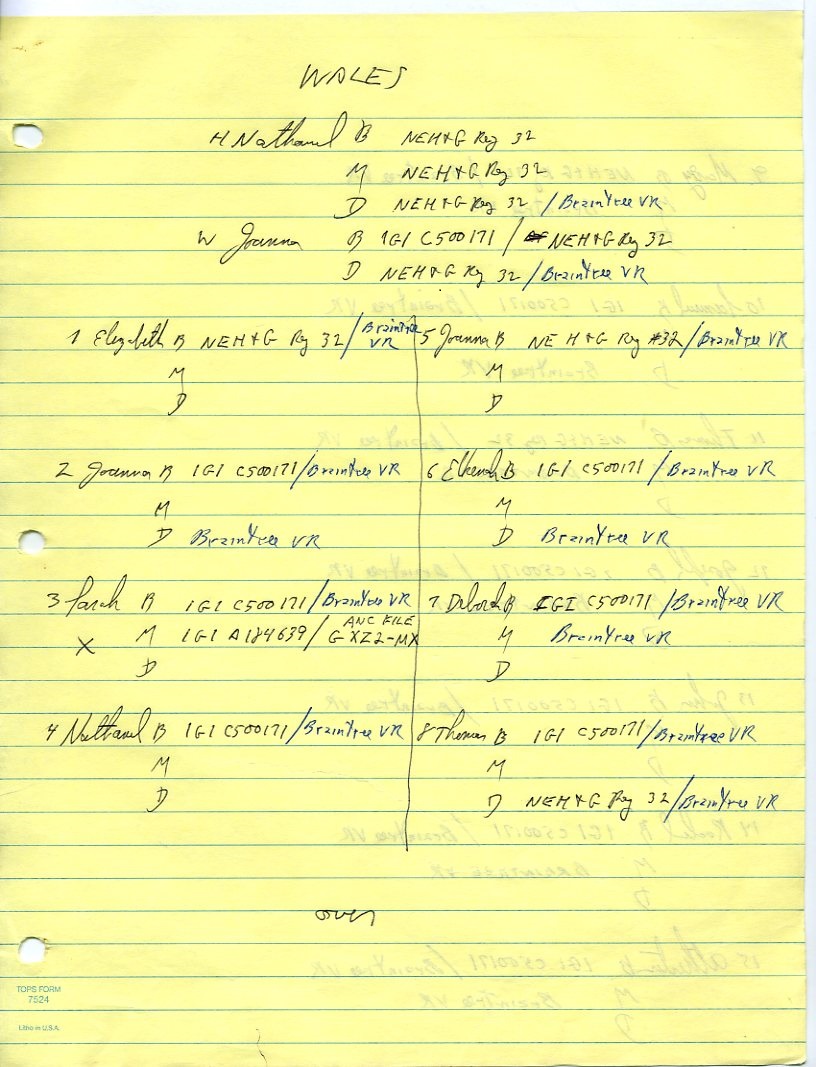 WALES
H Nathanel B NEH+G Reg 32
M NEH+G Reg 32
D NEH+G Reg 32 / Braintree VR
W Joanna B IGI C500171 / NEH+G Reg 32
D NEH+G Reg 32 / Braintree VR
1 Elizabeth B NEH+G Reg 32 / Braintree VR
M
D
2 Joanna B IGI C500171 / Braintree VR
M
D Braintree VR
3 Sarah B IGI C500171 / Braintree VR
X M IGI A184639 / ANC FILE GXZ2-MX
D
4 Nathanel B IGI C500171 / Braintree VR
M
D
5 Joanna B NEH+G Reg #32 / Braintree VR
M
D
6 Elkanah B IGI C500171 / Braintree VR
M
D Braintree VR
7 Deborah B IGI C500171 / Braintree VR
M Braintree VR
D
8 Thomas B IGI C500171 / Braintree VR
M
D NEH+G Reg 32 / Braintree VR
over
TOPS FORM
7524
Litho in U.S.A.